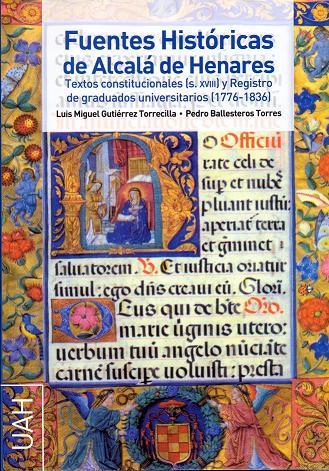 Fuentes Históricas
de Alcalá de Henares
Textos constitucionales (s. XVIII) y Registro
de graduados universitarios (1776-1836)
Luis Miguel Gutiérrez Torrecilla • Pedro Ballesteros Torres
Officiū
rate celi de
sup et nubes
pluant iustū:
aperiat terra
et gīminet
saluatorem. V. Et iusticia oriatur
simul: ego dn̄s creaui eū. Glorī.
Deus qui de bt̄e Oro.
marie uginis utero:
uerbum tuū angelo nūciāte
carnē suscipe uoluisti: presta
UAH